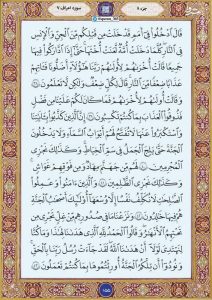 سوره اعراف ۷
جزء ۸
قَالَ ٱدۡخُلُواْ فِيٓ أُمَمٖ قَدۡ خَلَتۡ مِن قَبۡلِكُم مِّنَ ٱلۡجِنِّ وَٱلۡإِنسِ
فِي ٱلنَّارِۖ كُلَّمَا دَخَلَتۡ أُمَّةٞ لَّعَنَتۡ أُخۡتَهَاۖ حَتَّىٰٓ إِذَا ٱدَّارَكُواْ فِيهَا
جَمِيعٗا قَالَتۡ أُخۡرَىٰهُمۡ لِأُولَىٰهُمۡ رَبَّنَا هَٰٓؤُلَآءِ أَضَلُّونَا فَـَٔاتِهِمۡ
عَذَابٗا ضِعۡفٗا مِّنَ ٱلنَّارِۖ قَالَ لِكُلّٖ ضِعۡفٞ وَلَٰكِن لَّا تَعۡلَمُونَ ٣٨
وَقَالَتۡ أُولَىٰهُمۡ لِأُخۡرَىٰهُمۡ فَمَا كَانَ لَكُمۡ عَلَيۡنَا مِن فَضۡلٖ
فَذُوقُواْ ٱلۡعَذَابَ بِمَا كُنتُمۡ تَكۡسِبُونَ ٣٩ إِنَّ ٱلَّذِينَ كَذَّبُواْ بِـَٔايَٰتِنَا
وَٱسۡتَكۡبَرُواْ عَنۡهَا لَا تُفَتَّحُ لَهُمۡ أَبۡوَٰبُ ٱلسَّمَآءِ وَلَا يَدۡخُلُونَ
ٱلۡجَنَّةَ حَتَّىٰ يَلِجَ ٱلۡجَمَلُ فِي سَمِّ ٱلۡخِيَاطِۚ وَكَذَٰلِكَ نَجۡزِي
ٱلۡمُجۡرِمِينَ ٤٠ لَهُم مِّن جَهَنَّمَ مِهَادٞ وَمِن فَوۡقِهِمۡ غَوَاشٖۚ
وَكَذَٰلِكَ نَجۡزِي ٱلظَّٰلِمِينَ ٤١ وَٱلَّذِينَ ءَامَنُواْ وَعَمِلُواْ
ٱلصَّٰلِحَٰتِ لَا نُكَلِّفُ نَفۡسًا إِلَّا وُسۡعَهَآ أُوْلَٰٓئِكَ أَصۡحَٰبُ ٱلۡجَنَّةِۖ
هُمۡ فِيهَا خَٰلِدُونَ ٤٢ وَنَزَعۡنَا مَا فِي صُدُورِهِم مِّنۡ غِلّٖ تَجۡرِي مِن
تَحۡتِهِمُ ٱلۡأَنۡهَٰرُۖ وَقَالُواْ ٱلۡحَمۡدُ لِلَّهِ ٱلَّذِي هَدَىٰنَا لِهَٰذَا وَمَا كُنَّا
لِنَهۡتَدِيَ لَوۡلَآ أَنۡ هَدَىٰنَا ٱللَّهُۖ لَقَدۡ جَآءَتۡ رُسُلُ رَبِّنَا بِٱلۡحَقِّۖ
وَنُودُوٓاْ أَن تِلۡكُمُ ٱلۡجَنَّةُ أُورِثۡتُمُوهَا بِمَا كُنتُمۡ تَعۡمَلُونَ ٤٣
۱۵۵